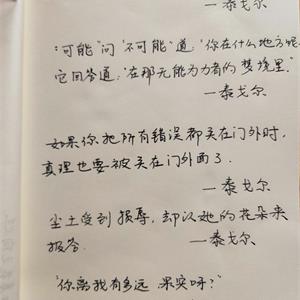 —泰戈尔
"可能"问"不可能"道:"你在什么地方呢
它回答道:"在那无能为力者的梦境里."
—泰戈尔
如果你把所有错误都关在门外时,
真理也要被关在门外面了.
—泰戈尔
尘土受到损辱,却以她的花朵来
报答. —泰戈尔
"你离我有多远,果实呀?"